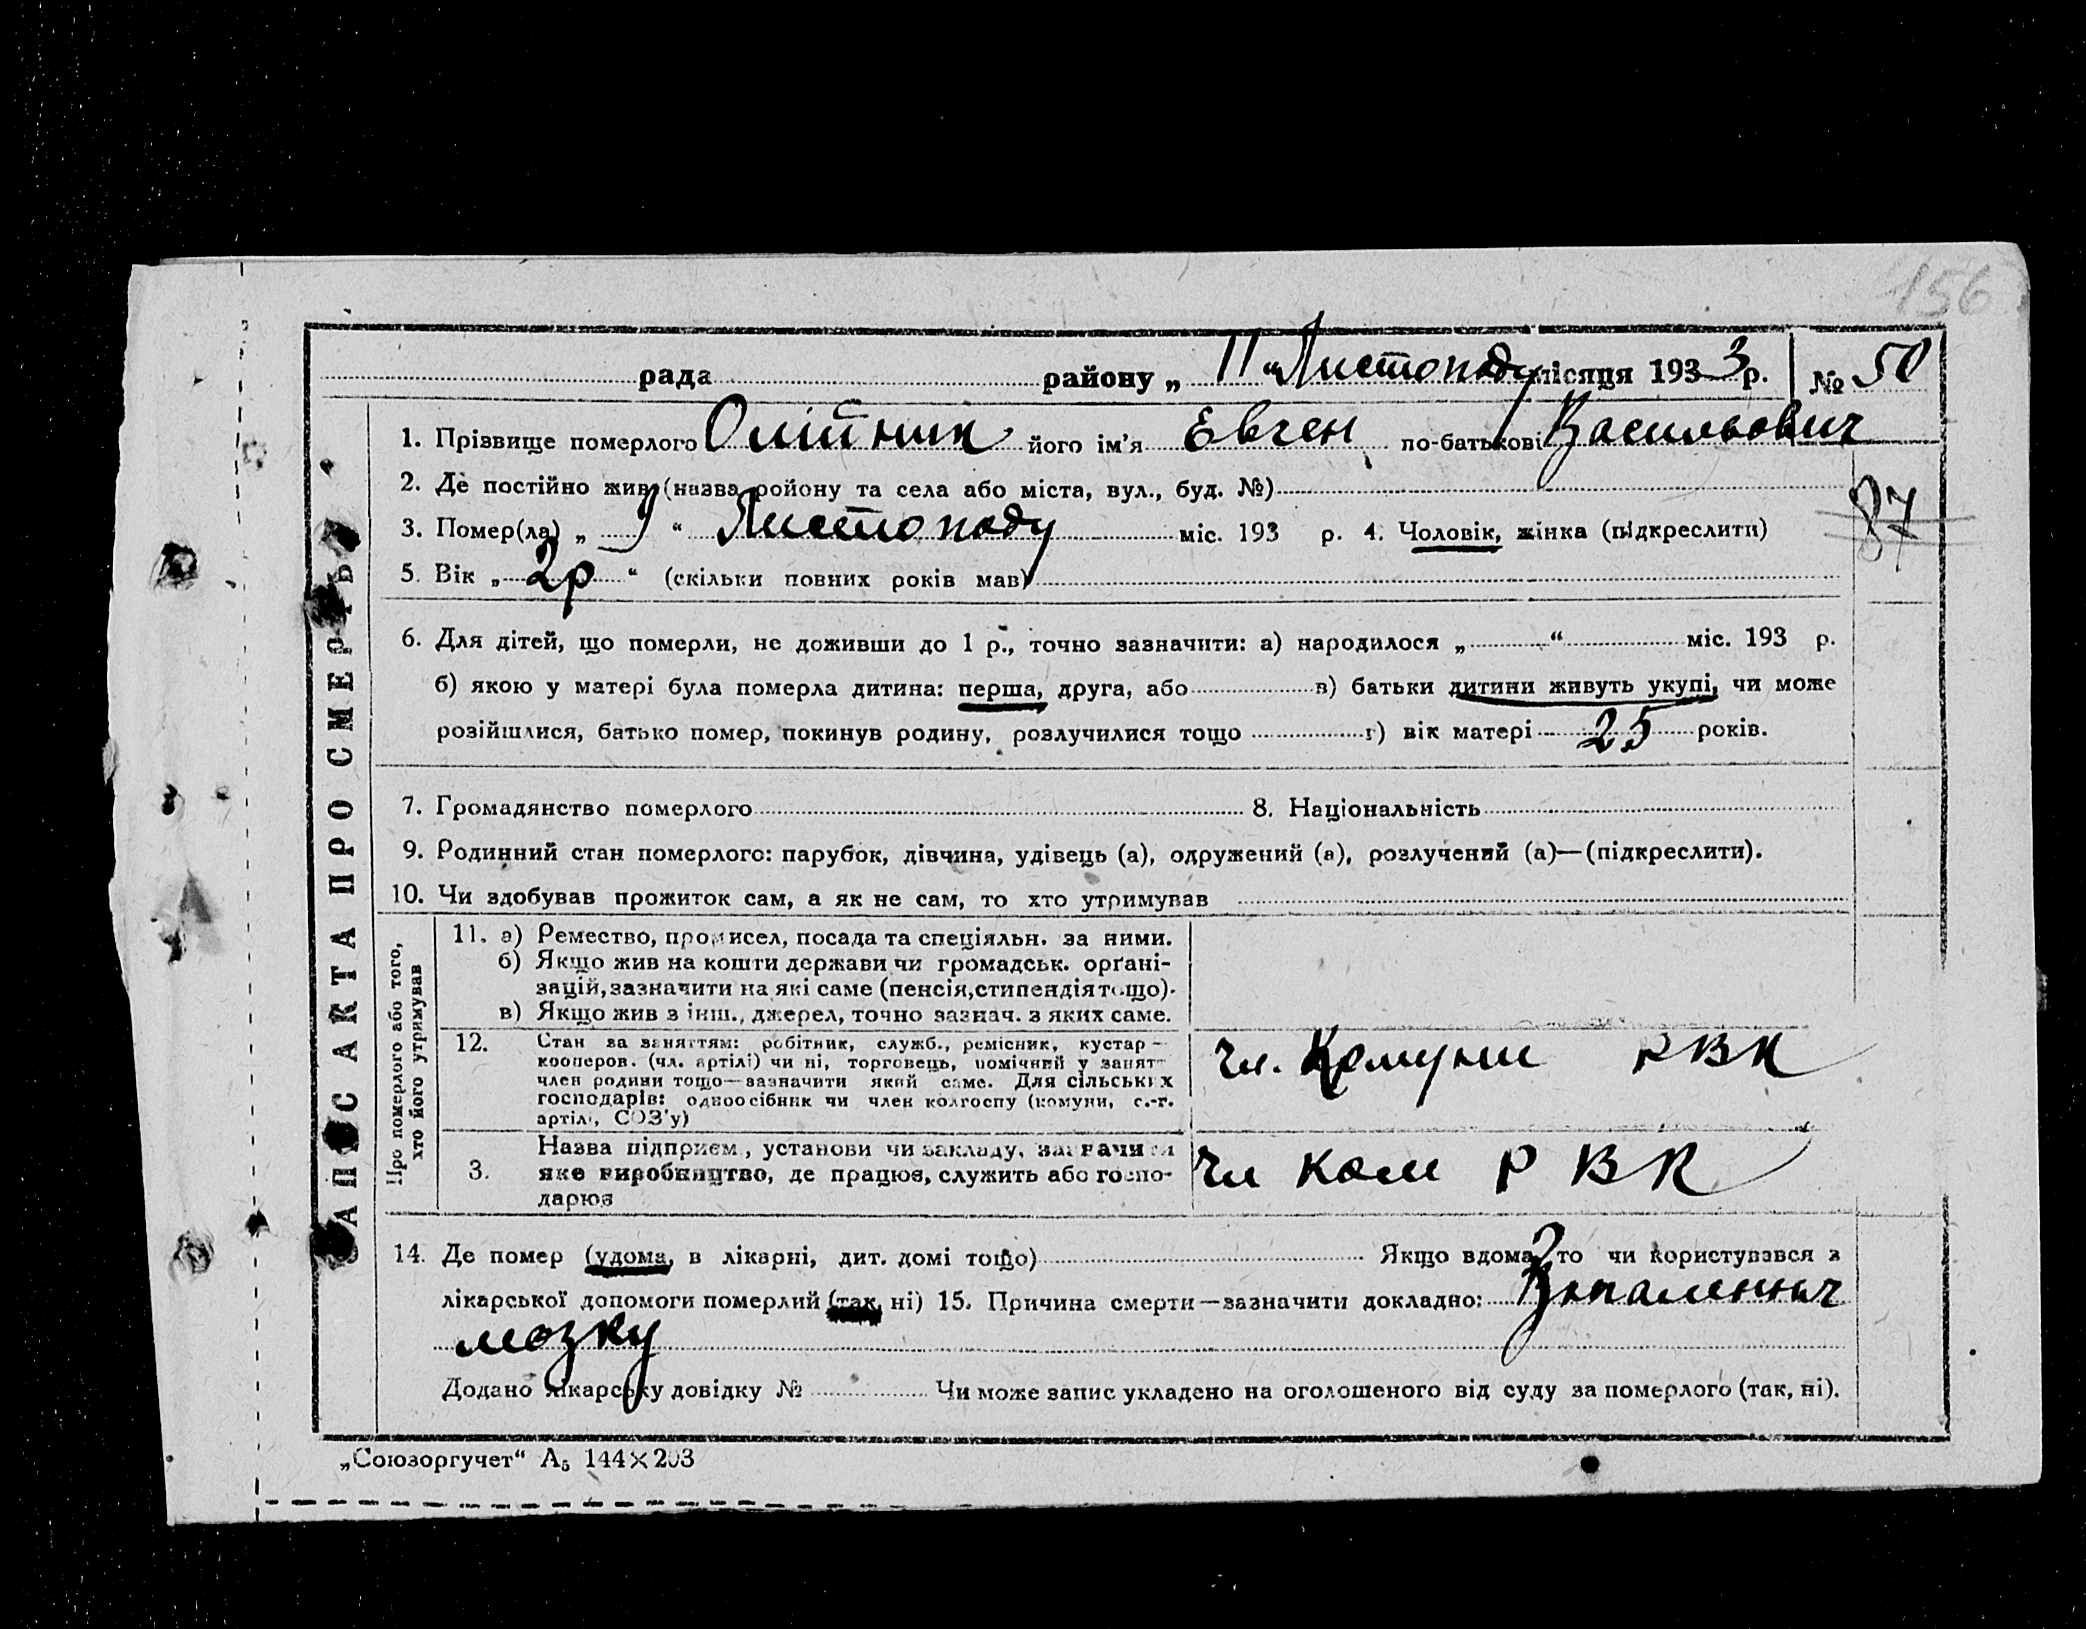 156
рада района „ 11 “ Листопаду місяця 1933 р. № 50
1. Прізвище померлого Олійник його ім’я Евген по-батькові Васильович
2. Де постійно жив (назва району та села або міста, вул., буд. №)
3. Помер(ла) „ 9 “ Листопаду міс. 193 р. 4. Чоловік, жінка (підкреслити)
87
5. Вік „ 2р “ (скільки повних років мав)
6. Для дітей, що померли, не доживши до 1 р., точно зазначити: а) народилося „ “ міс. 193 р.
б) якою у матері була померла дитина: перша, друга, або в) батьки дитини живуть укупі, чи може
розійшлися, батько помер, покинув родину, розлучилися тощо г) вік матері 25 років.
7. Громадянство померлого 8. Національність
9. Родинний стан померлого: парубок, дівчина, удівець (а), одружений (а), розлучений (а)—(підкреслити).
10. Чи здобував прожиток сам, а як не сам, то хто утримував
ЗАПИС АКТА ПРО СМЕРТЬ
Про померлого або того,
хто його утримував
11. а) Ремество, промисел, посада та спеціяльн. за ними.
б) Якщо жив на кошти держави чи громадськ. орґані-
зацій, зазначити на які саме (пенсія, стипендія тощо).
в) Якщо жив з інш., джерел, точно зазнач. з яких саме.
12. Стан за заняттям: робітник, служб., ремісник, кустар—
кооперов. (чл. артілі) чи ні, торговець, помічний у занят—
член родини тощо—зазначити який саме. Для сільських
господарів: одноосібник чи член колгоспу (комуни, с.-г.
артілі, СОЗ’у)
Чл. Комуни РВК
3. Назва підприєм., установи чи закладу, зазначити
яке виробництво, де працює, служить або госпо-
дарює
Чл Ком РВК
14. Де помер (удома, в лікарні, дит. домі тощо) Якщо вдома, то чи користувався з
лікарської допомоги померлий (так, ні) 15. Причина смерти—зазначити докладно: Запалення
мозку
Додано лікарську довідку № Чи може запис укладено на оголошеного від суду за померлого (так, ні).
„Союзоргучет“ А₅ 144×203